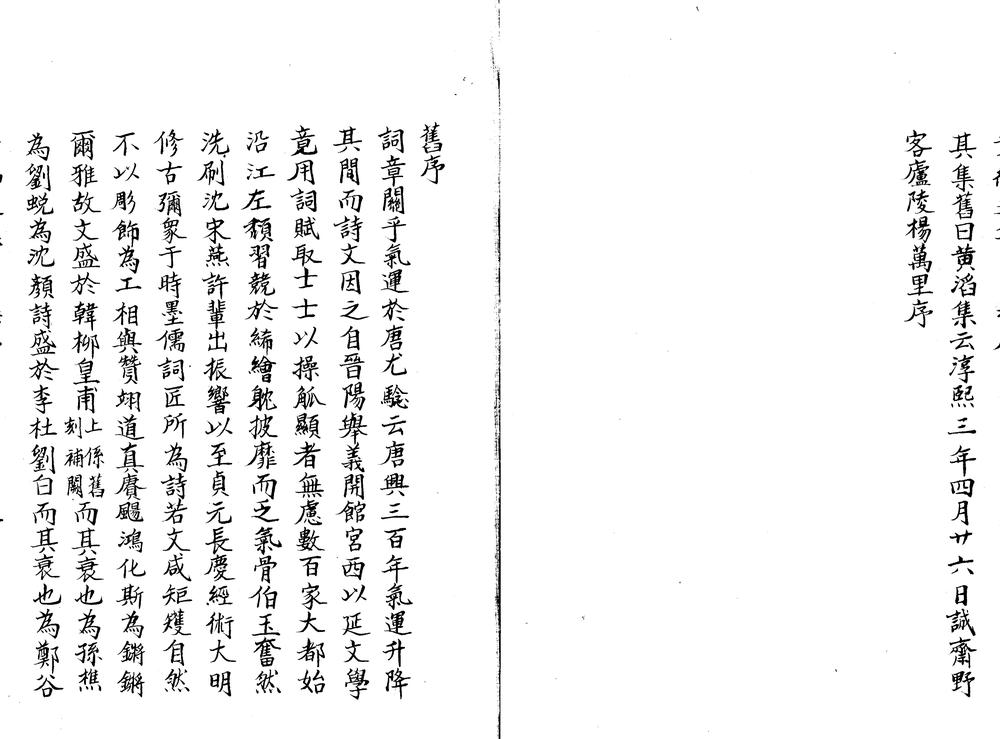 其集舊曰黄滔集云淳熙三年四月廿六日誠齋野
客廬陵楊萬里序
舊序
詞章關乎氣運於唐尤驗云唐興三百年氣運升降
其間而詩文因之自晉陽舉義開館宮西以延文學
竟用詞賦取士士以操觚顯者無慮數百家大都始
沿江左頽習競於絺繪躭披靡而乏氣骨伯玉奮然
洗刷沈宋燕許輩出振響以至貞元長慶經術大明
修古彌衆于時墨儒詞匠所為詩若文咸矩矱自然
不以彫飾為工相與贊翊道真賡颺鴻化斯為鏘鏘
爾雅故文盛於韓柳皇甫上係舊刻補闕而其衰也為孫樵
為劉蛻為沈顏詩盛於李杜劉白而其衰也為鄭谷